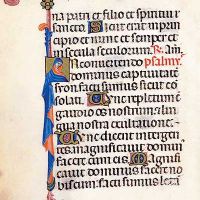 na patri et filio et spiritui
sancto. Sicut erat in prin
cipio et nunc et semper et
in secula seculorum. Am̄.
In convertendo psalmus
dominus captivitatē
facti sumus sicut cō
solati Tunc repletum ē
gaudio os nostrum et lin
gua nostra exultatione
Tunc dicent inter gen
tes magnificavit dominus
facere cum eis Magni
ficavit dominus facere no
biscum facti sumus leta